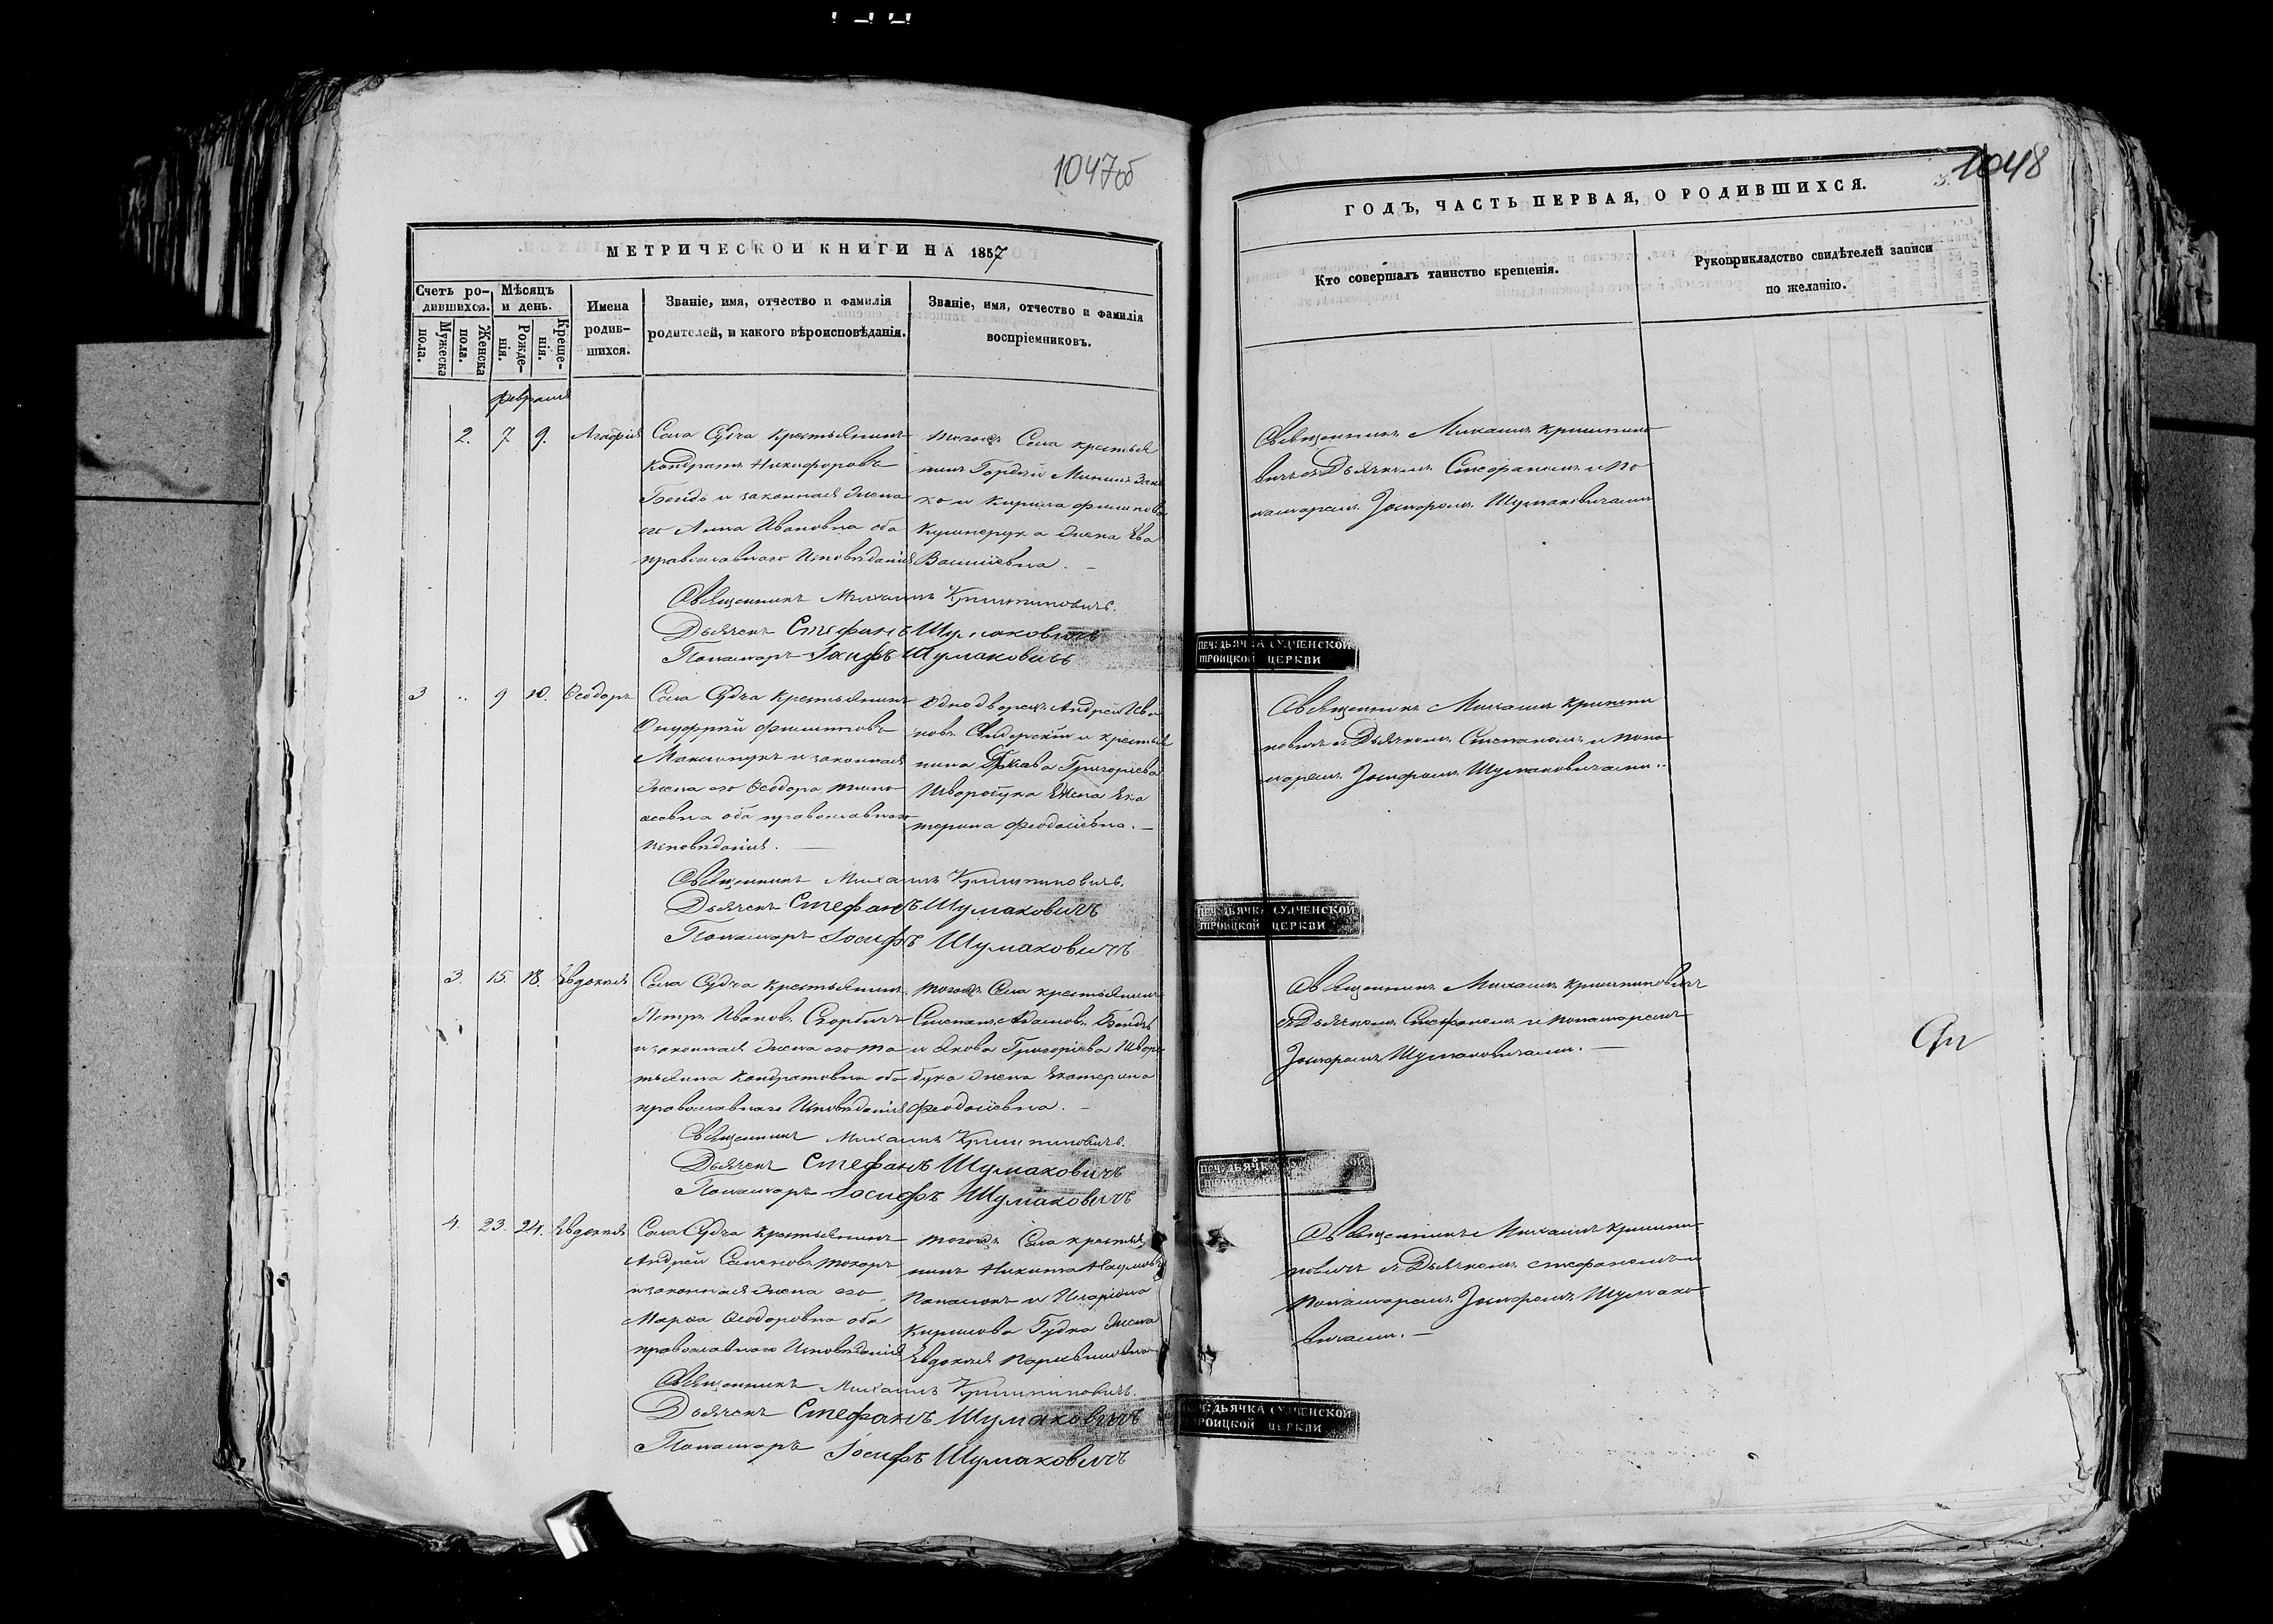 1047об
МЕТРИЧЕСКОЙ КНИГИ НА 1857
Счетъ родившихся.
Мѣсяцъ и день.
Имена родившихся.
Званіе, имя, отчество и фамилія родителей, и какого вѣроисповѣданія.
Званіе, имя, отчество и фамилія воспріемниковъ.
Мужеска пола.
Женска пола.
Рожденія.
Крещенія.
Февраля
2. 7 9. Агафія
Села Судча крестьянинъ
Кондратъ Никифоровъ
Бендь и законная жена
его Анна Ивановна оба
православнаго Исповѣданія
тогожъ Села крестья
нинъ Гордѣй Мининъ
ко и Кирила Филипова
Кушнерука жена Ева
Василіевна. –
Священникъ Михаилъ Криштиновичъ.
Дьячекъ Стефанъ Шумаковичъ
Понамарь Іосифъ Шумаковичъ
3 .. 9 10. Ѳеодоръ
Села Судча Крестьянинъ
Онуфрій Филиповъ
Максимукъ и законная
жена его Ѳеодора Тимо
ѳеевна оба православнаго
исповѣданія. —
Однодворецъ Андрей Ива
новъ Сидорскій и крестья
нина Якова Григоріева
Шворобука жена Ека
терина Феодосіевна. —
Священникъ Михаилъ Криштиновичъ.
Дьячекъ Стефанъ Шумаковичъ
Понамарь Іосифъ Шумаковичъ
3. 15. 18. Евдокія
Села Судча крестьянинъ
Петръ Ивановъ Скорбичъ
и законная жена его та
тьяна Кондратовна оба
православнаго Исповѣданія
тогожъ Села крестьянинъ
Степанъ Адамовъ Бендь
и Якова Григоріева Шворо
бука жена Екатерина
Феодосіевна. –
Священникъ Михаилъ Криштиновичъ.
Дьячекъ Стефанъ Шумаковичъ
Понамарь Іосифъ Шумаковичъ
4. 23. 24. Евдокія
Села Судча Крестьянинъ
Андрей Семеновъ Токарь
и законная жена его
Марѳа Ѳеодоровна оба
православнаго Исповѣданія
тогожъ Села крестья
нинъ Никита Наумовъ
Панасюкъ и Иларіона
Кирилова Гудка жена
Евдокія
Священникъ Михаилъ Криштиновичъ.
Дьячекъ Стефанъ Шумаковичъ
Понамарь Іосифъ Шумаковичъ
1048
ГОДЪ, ЧАСТЬ ПЕРВАЯ, О РОДИВШИХСЯ.
Кто совершалъ таинство крещенія.
Рукоприкладство свидѣтелей записи
по желанію.
Священникъ Михаилъ Криштино
вичъ съ Дьячкомъ Стефаномъ и по
намаремъ Іосифомъ Шумаковичами
ПЕЧ: ДЬЯЧКА СУДЧЕНСКОЙ
ТРОИЦКОЙ ЦЕРКВИ
Священникъ Михаилъ Кришти
новичъ съ Дьячкомъ Стефаномъ и пона
маремъ Іосифомъ Шумаковичами.
ПЕЧ: ДЬЯЧКА СУДЧЕНСКОЙ
ТРОИЦКОЙ ЦЕРКВИ
Священникъ Михаилъ Криштиновичъ
съ Дьячкомъ Стефаномъ и понамаремъ
Іосифомъ Шумаковичами. —
ПЕЧ: ДЬЯЧКА
Священникъ Михаилъ Кришти
новичъ съ Дьячкомъ Стефаномъ и
Понамаремъ Іосифомъ Шумако
вичами. —
ПЕЧ: ДЬЯЧКА СУДЧЕНСКОЙ
ТРОИЦКОЙ ЦЕРКВИ